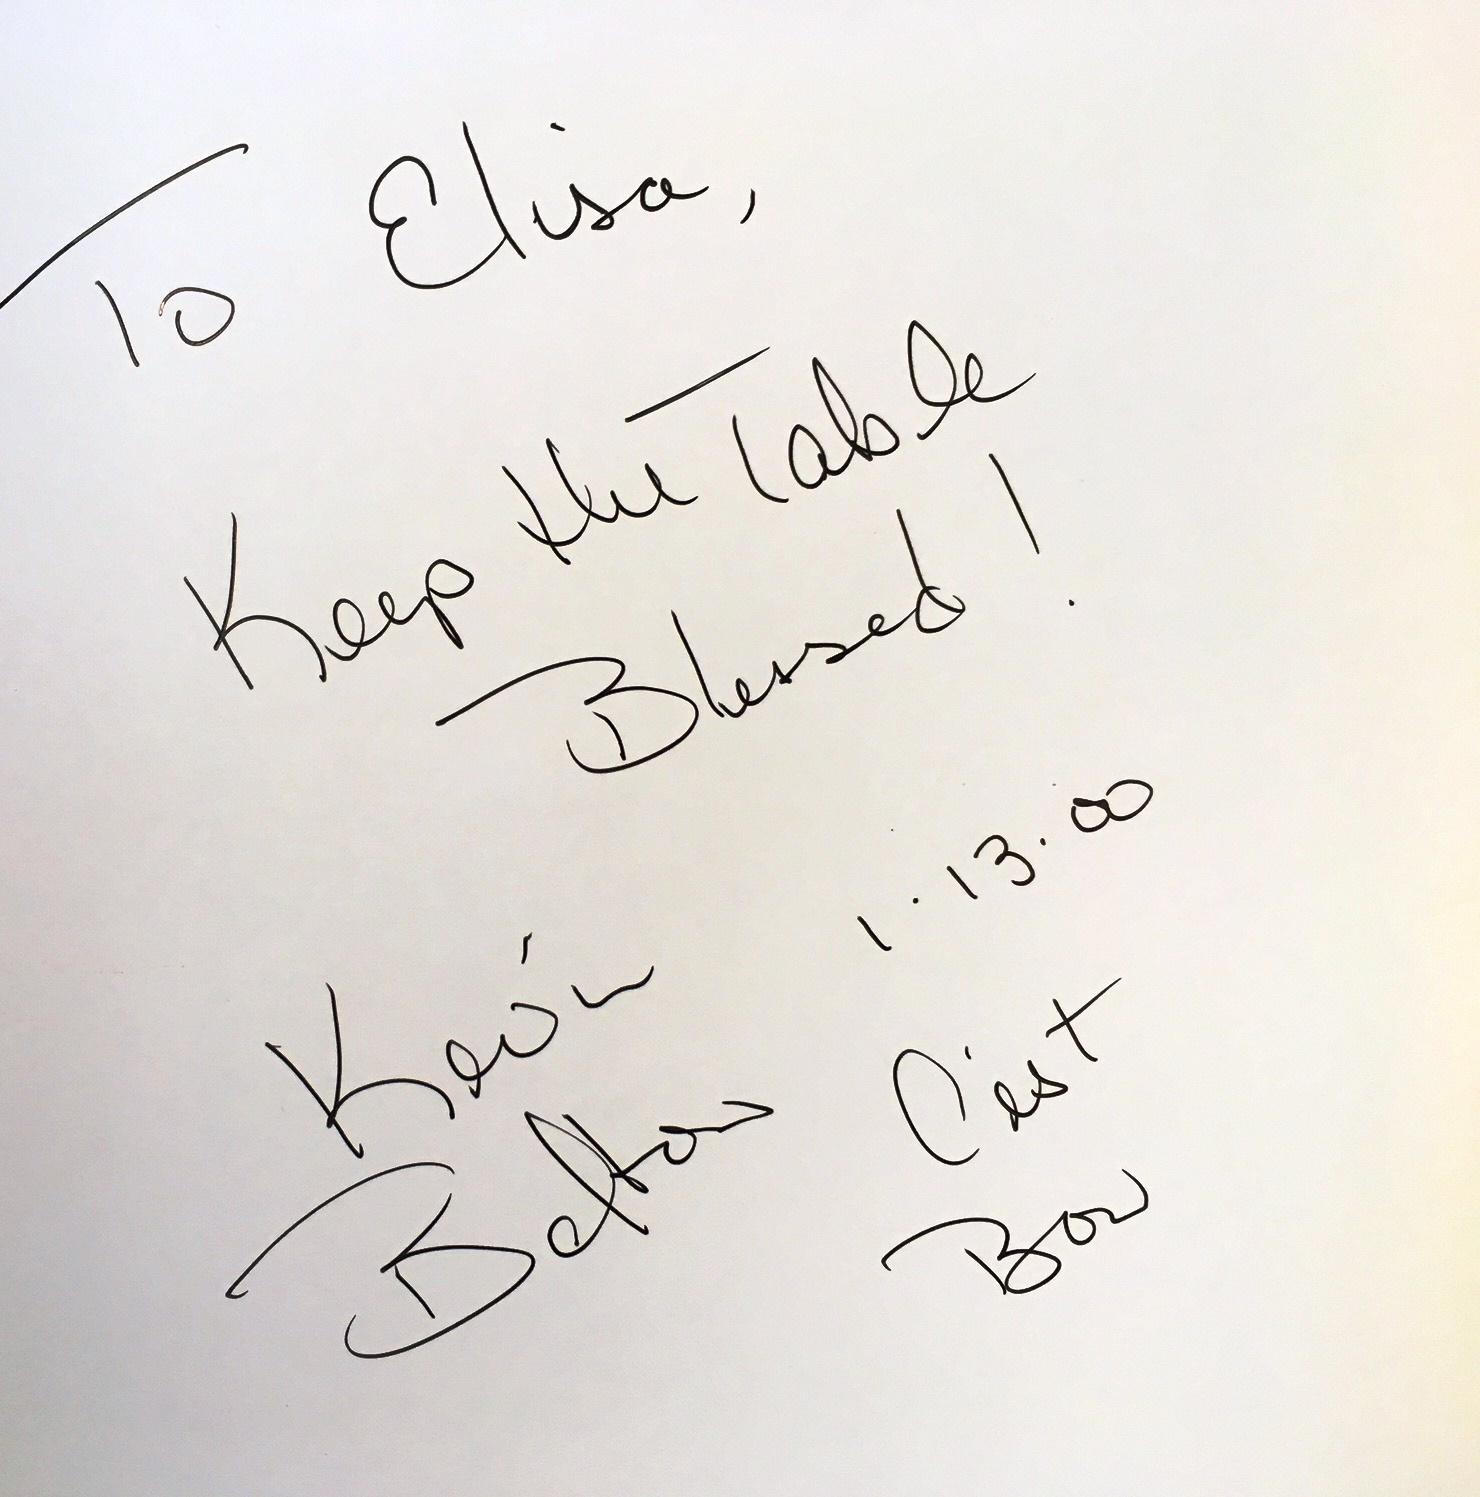 To Elisa,
Keep the Table
Blessed!
1.13.00
Kevin
Belton
C'est
Bon